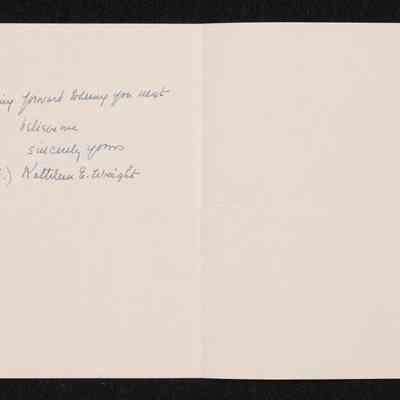 ing forward to seeing you next
believe me
sincerely yours
.) Kathleen E. Wright